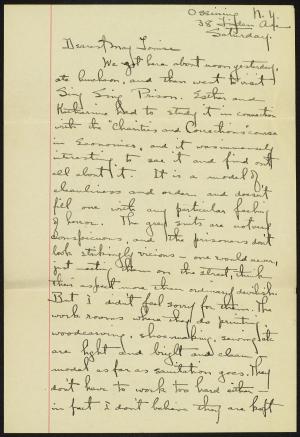 Ossining N.Y.
38 Linden Ave
Saturday.
Dearest May Louise
We got here about noon yesterday,
ate luncheon, and then went to visit
Sing Sing Prison. Esther and
Katharine had to study it in connection
with the "Charities and Corrections course
in Economics, and it was immensely
interesting to see it and find out
all about it. It is a model of
cleanliness and order, and doesn't
fill one with any particular feeling
of horror. The grey suits are not very
conspicuous, and the prisoners don't
look strikingly vicious – one would never,
just seeing them on the street, think
their aspect more than ordinary devilish.
But I didn't feel sorry for them. The
work rooms where they do printing
woodcarving, shoemaking, sewing etc
are light and bright and clean, a
model as far as sanitation goes. They
don't have to work too hard either –
in fact I don't believe they are kept